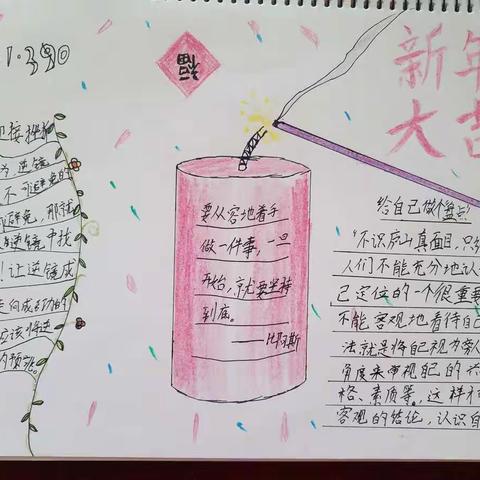 福
新年
大吉
迎接挫折
逆境
不可避免的
避免，那就
逆境中找
！让逆境成
走向成功的
应该将逆
要从容地着手
做一件事，一旦
开始，就要坚持
到底。
——比阿斯
给自己做个盘点！
“不识庐山真面目，只缘
人们不能充分地认
己定位的一个很重要
不能客观地看待自己
法就是将自己视为旁人
角度来审视自己的
格、素质等。这样才
客观的结论，认识自